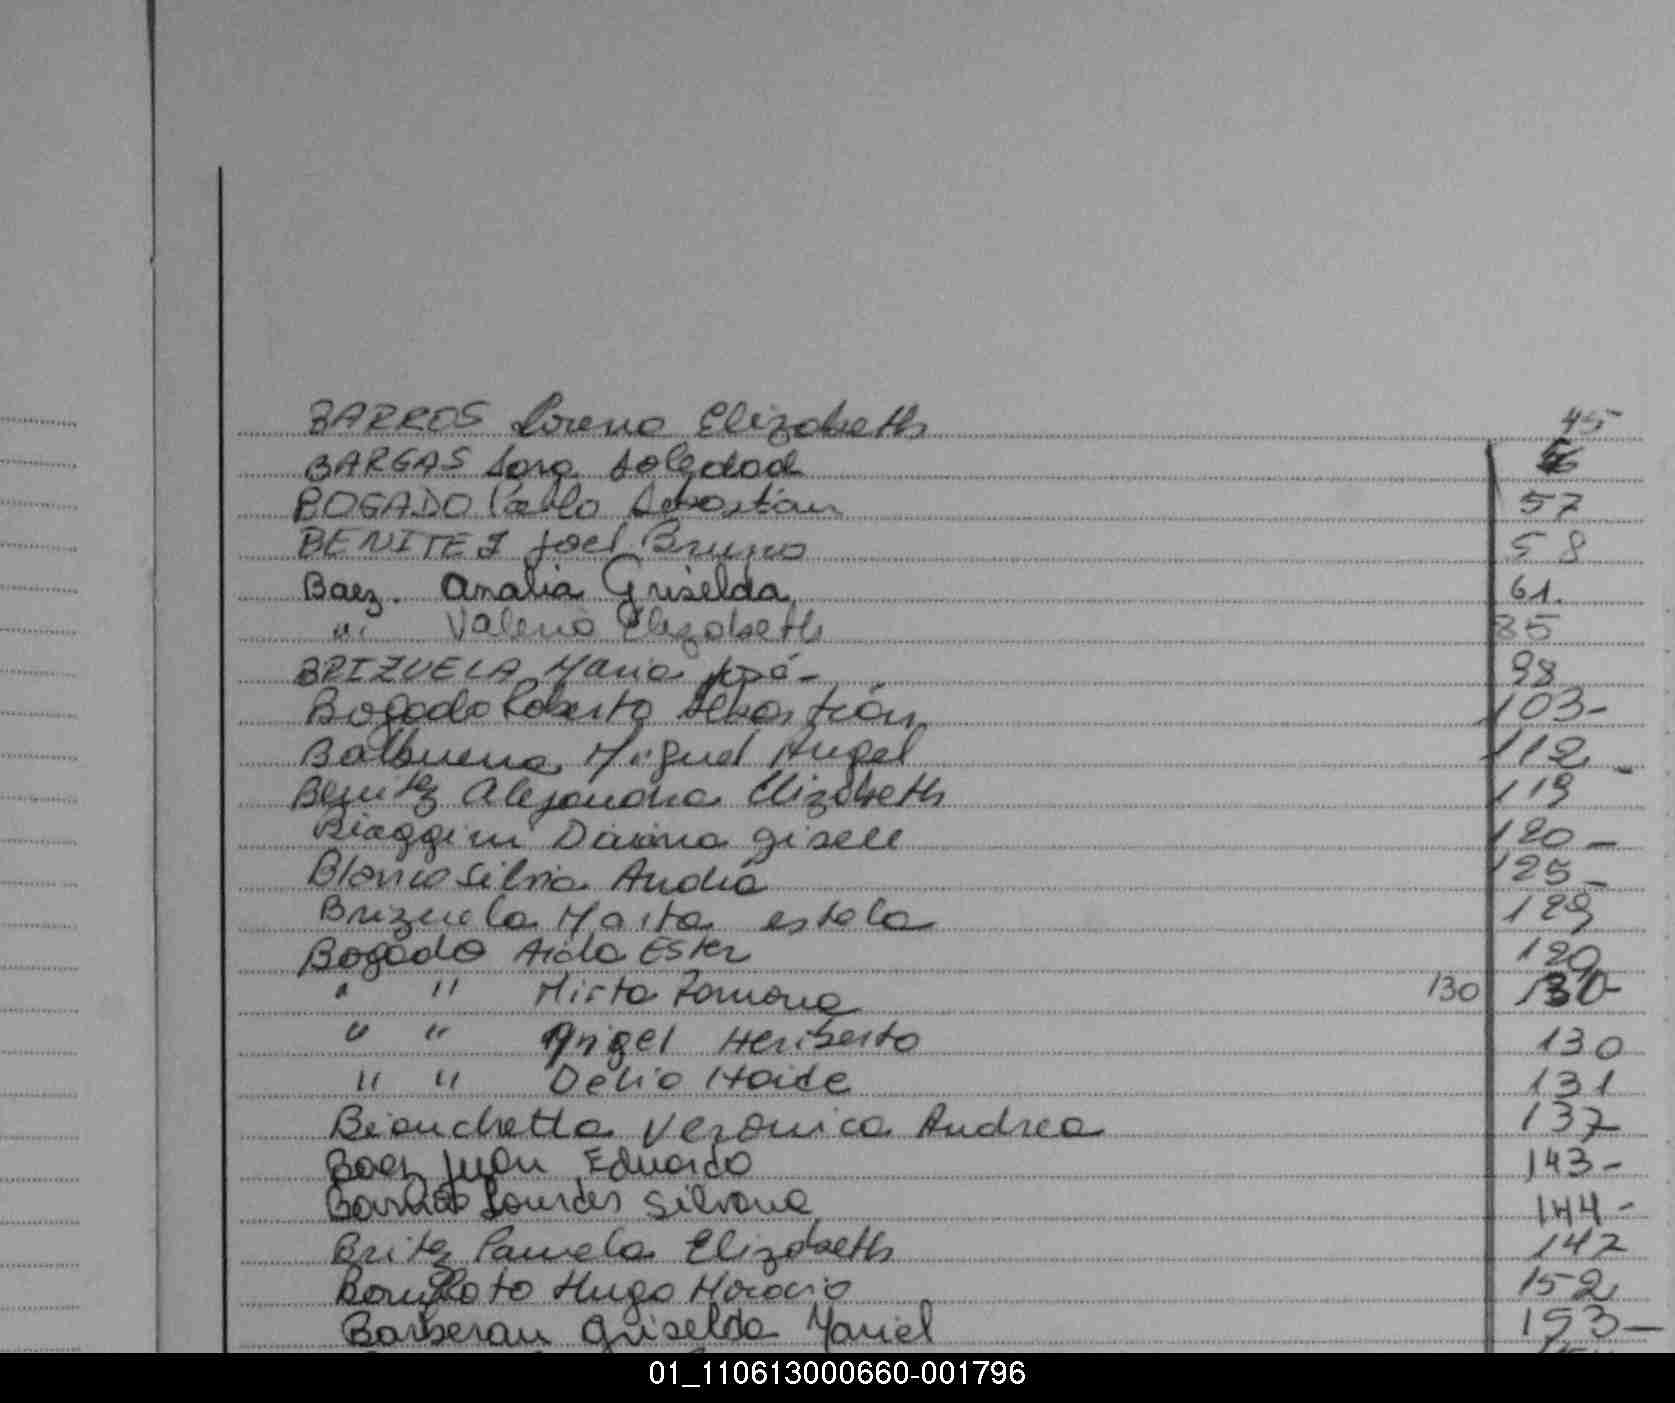 BARROS Lorena Elizabeth 45
BARGAS Sara Soledad 56
BOGADO Pablo Sebastian 57
BENITEZ Joel Bruno 58
Baez. Analia Griselda 61.
" Valeria Elizabeth 85
BRIZUELA Maria José - 98
Bogado Roberto Sebastián 103-
Balbuena Miguel Angel 112 -
Benitez Alejandra Elizabeth 119
Biaggini Daiana Gisell 120 -
Blanco Silvia Andrea 125 -
Brizuela Marta estela 129
Bogado Aida Ester 120
" " Mirta Ramona 130 130-
" " Angel Heriberto 130
" " Delia Haide 131
Bianchetta Veronica Andrea 137
Baez Juan Eduardo 143-
Lourdes Silvana 144-
Britez Pamela Elizabeth 147
Hugo Horacio 152
Barberan Griselda Mariel 153-
01_110613000660-001796